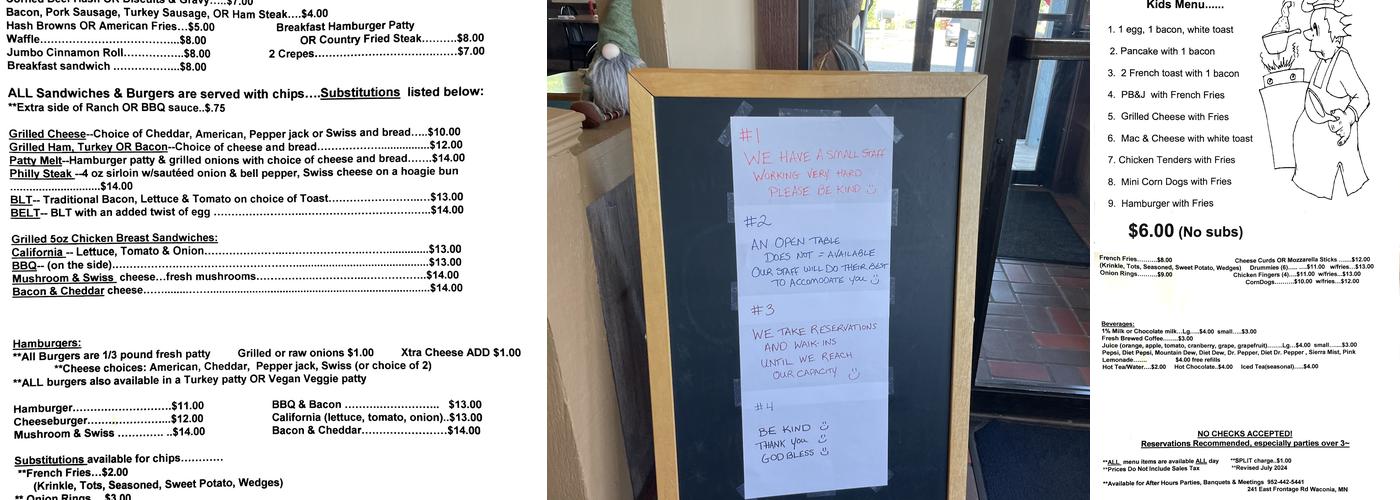 Bacon, Pork Sausage, Turkey Sausage, OR Ham Steak....$4.00
Hash Browns OR American Fries...$5.00
Breakfast Hamburger Patty
Waffle.......................$8.00
OR Country Fried Steak.........$8.00
Jumbo Cinnamon Roll...............$8.00
2 Crepes.....................................$7.00
Breakfast sandwich .................$8.00
ALL Sandwiches & Burgers are served with chips....Substitutions listed below:
**Extra side of Ranch OR BBQ sauce..$.75
Grilled Cheese--Choice of Cheddar, American, Pepper jack or Swiss and bread.....$10.00
Grilled Ham, Turkey OR Bacon--Choice of cheese and bread...........................$12.00
Patty Melt--Hamburger patty & grilled onions with choice of cheese and bread.......$14.00
Philly Steak --4 oz sirloin w/sautéed onion & bell pepper, Swiss cheese on a hoagie bun
...........................$14.00
BLT-- Traditional Bacon, Lettuce & Tomato on choice of Toast...........................$13.00
BELT-- BLT with an added twist of egg ...................................................$14.00
Grilled 5oz Chicken Breast Sandwiches:
California -- Lettuce, Tomato & Onion.......................................................$13.00
BBQ-- (on the side)...............................................................................$13.00
Mushroom & Swiss cheese...fresh mushrooms..........................................$14.00
Bacon & Cheddar cheese........................................................................$14.00
Hamburgers:
**All Burgers are 1/3 pound fresh patty Grilled or raw onions $1.00 Xtra Cheese ADD $1.00
**Cheese choices: American, Cheddar, Pepper jack, Swiss (or choice of 2)
**ALL burgers also available in a Turkey patty OR Vegan Veggie patty
Hamburger..........................$11.00
BBQ & Bacon ........................ $13.00
Cheeseburger......................$12.00
California (lettuce, tomato, onion)..$13.00
Mushroom & Swiss ............ ..$14.00
Bacon & Cheddar......................$14.00
Substitutions available for chips............
**French Fries...$2.00
(Krinkle, Tots, Seasoned, Sweet Potato, Wedges)
** Onion Rings... $3.00
#1
WE HAVE A SMALL STAFF
WORKING VERY HARD
PLEASE BE KIND
#2
AN OPEN TABLE
DOES NOT = AVAILABLE
OUR STAFF WILL DO THEIR BEST
TO ACCOMODATE YOU
#3
WE TAKE RESERVATIONS
AND WALK-INS
UNTIL WE REACH
OUR CAPACITY
#4
BE KIND
THANK YOU
GOD BLESS
Kids Menu......
1. 1 egg, 1 bacon, white toast
2. Pancake with 1 bacon
3. 2 French toast with 1 bacon
4. PB&J with French Fries
5. Grilled Cheese with Fries
6. Mac & Cheese with white toast
7. Chicken Tenders with Fries
8. Mini Corn Dogs with Fries
9. Hamburger with Fries
$6.00 (No subs)
French Fries..........$8.00
(Krinkle, Tots, Seasoned, Sweet Potato, Wedges)
Onion Rings.........$9.00
Cheese Curds OR Mozzarella Sticks ......$12.00
Drummies (6)..... ....$11.00 w/fries...$13.00
Chicken Fingers (4)....$11.00 w/fries...$13.00
CornDogs........$10.00 w/fries...$12.00
Beverages:
1% Milk or Chocolate milk...Lg....$4.00 small....$3.00
Fresh Brewed Coffee.......$3.00
Juice (orange, apple, tomato, cranberry, grape, grapefruit).......Lg...$4.00 small...$3.00
Pepsi, Diet Pepsi, Mountain Dew, Diet Dew, Dr. Pepper, Diet Dr. Pepper , Sierra Mist, Pink
Lemonade....... $4.00 free refills
Hot Tea/Water....$2.00 Hot Chocolate..$4.00 Iced Tea(seasonal).....$4.00
NO CHECKS ACCEPTED!
Reservations Recommended, especially parties over 3~
**ALL menu items are available ALL day **SPLIT charge..$1.00
**Prices Do Not Include Sales Tax **Revised July 2024
**Available for After Hours Parties, Banquets & Meetings 952-442-5441
241 East Frontage Rd Waconia, MN